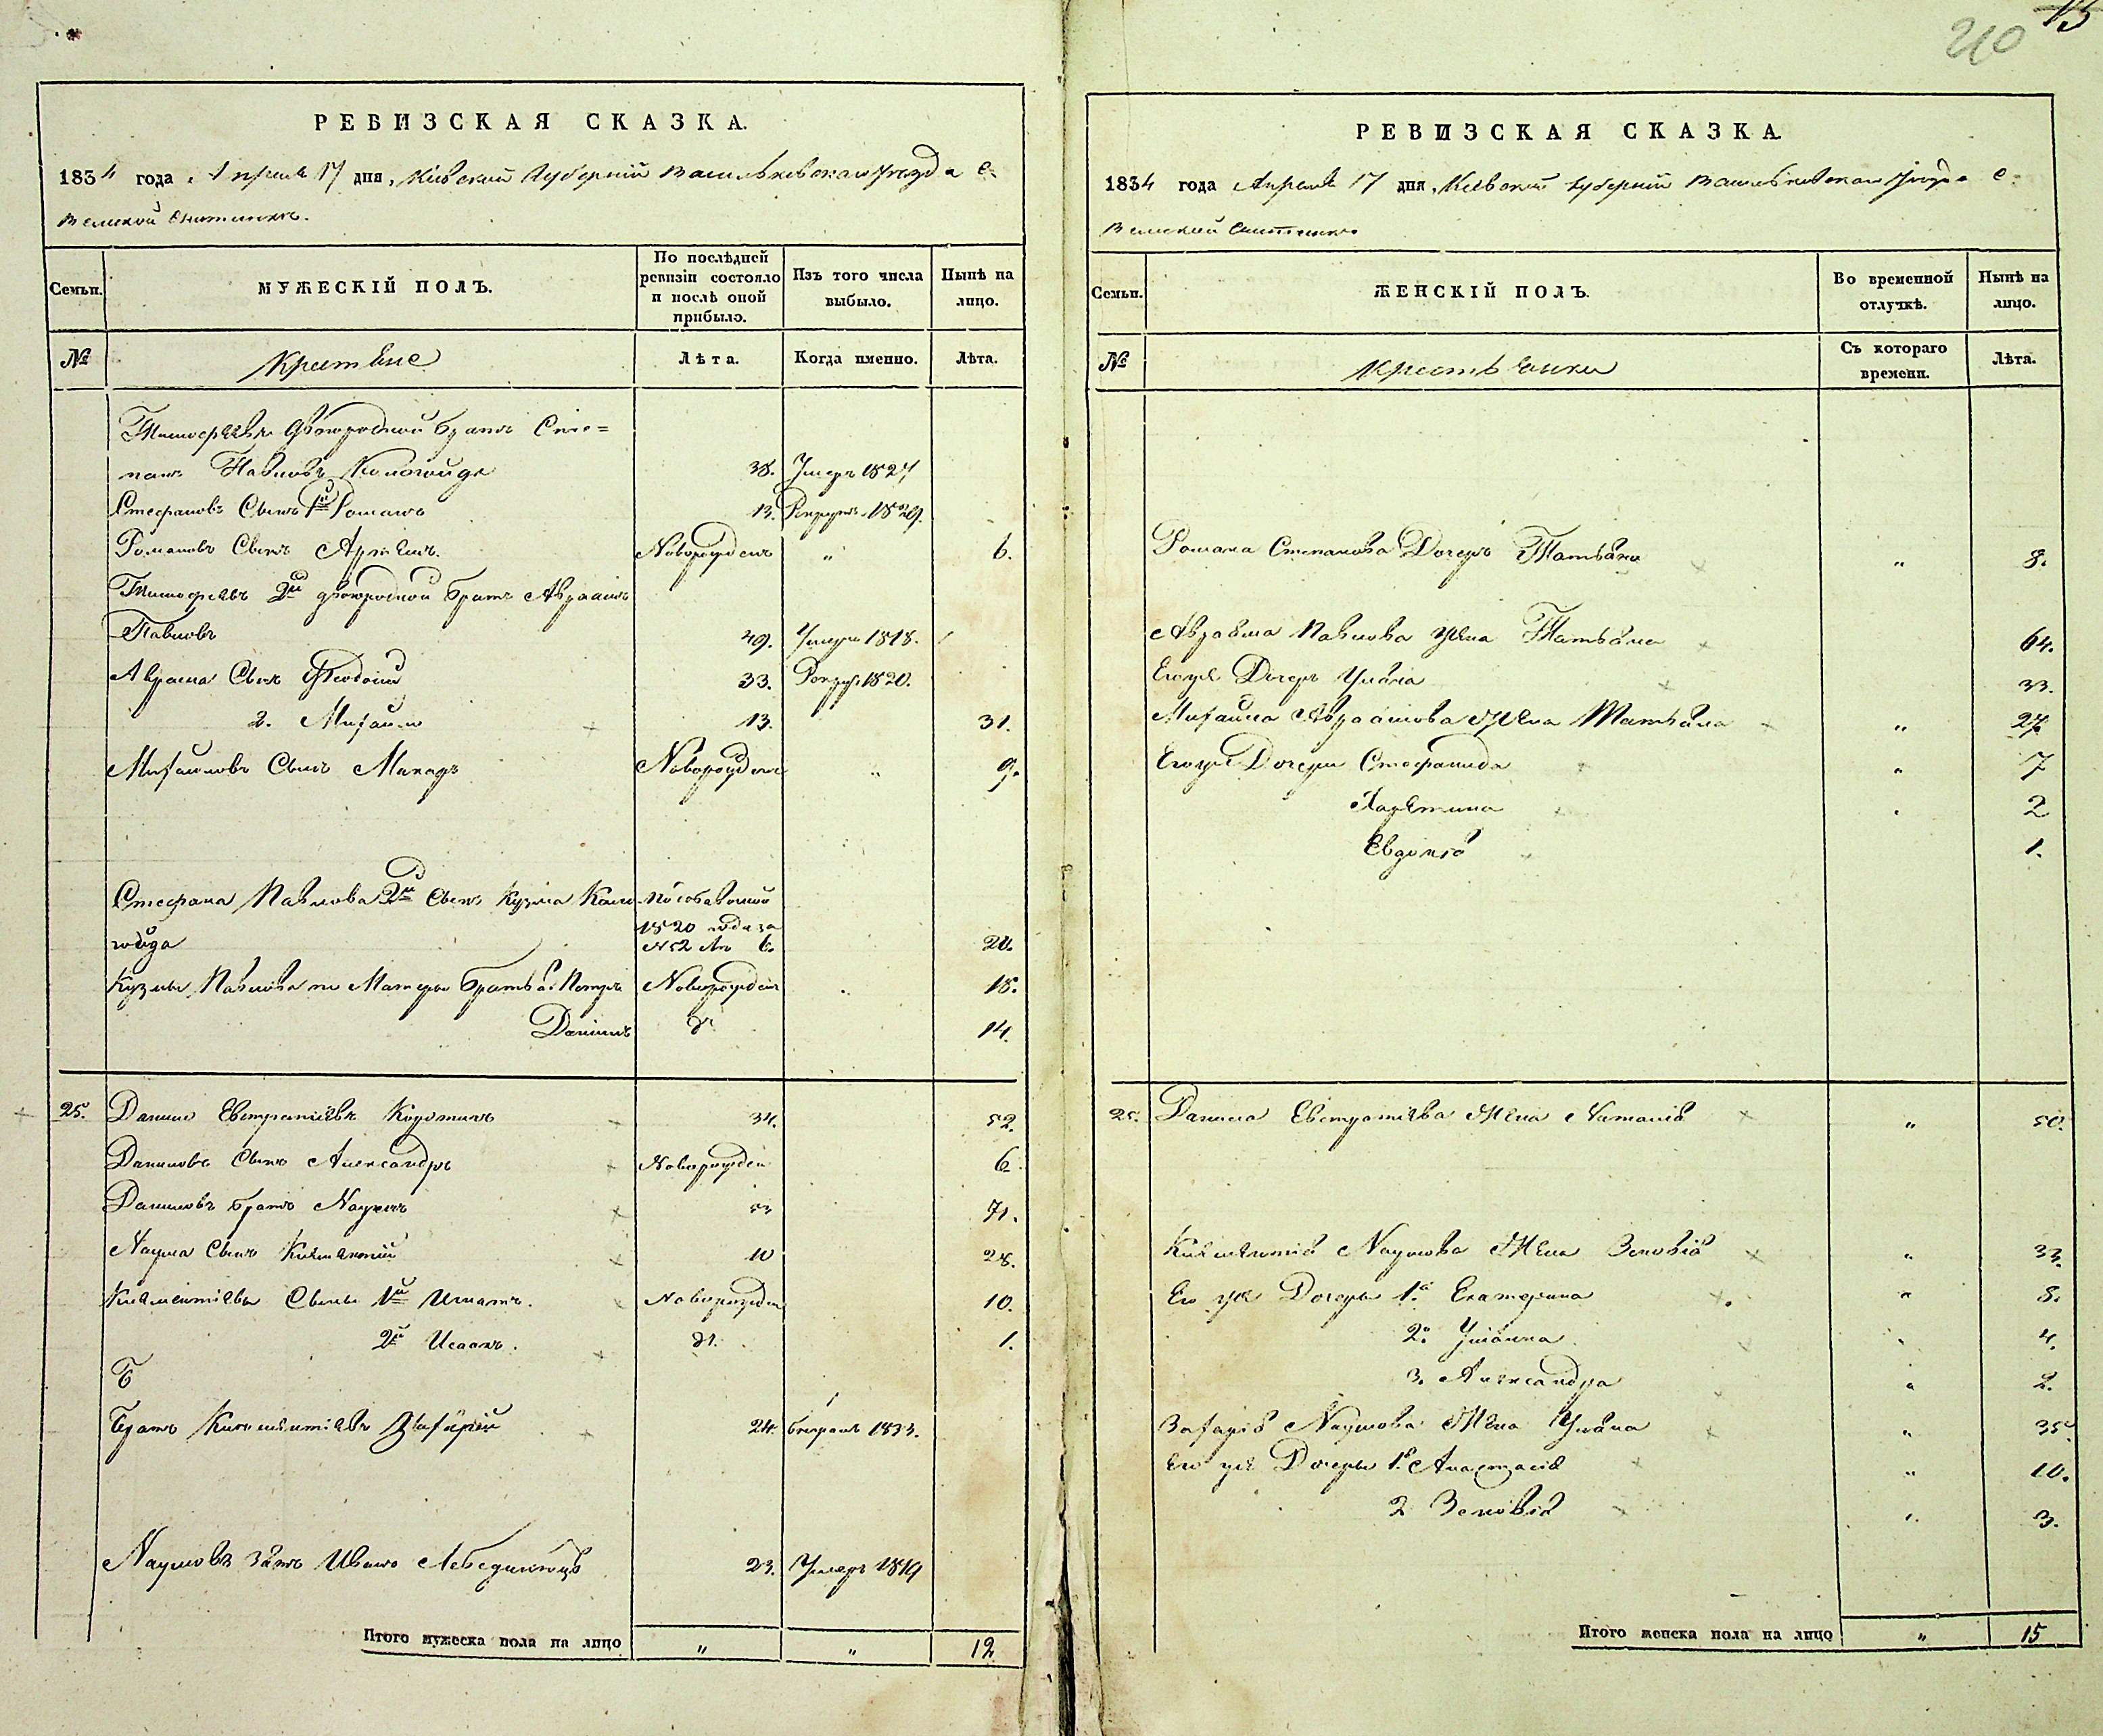 15
210
РЕВИЗСКАЯ СКАЗКА.
1834 года, Апреля 17 дня, Кіевской Губерніи Васильковскаго уезда с.
Великой Снитинки.
Семьи.
МУЖЕСКІЙ ПОЛЪ.
По послѣдней ревизіи состояло и послѣ оной прибыло.
Изъ того числа выбыло.
Нынѣ на лицо.
№
Крестьяне
Лѣта.
Когда именно.
Лѣта.
Тимофеевъ двоюродной братъ Сте=
панъ Павловъ 38. Умеръ 1827
Стефановъ Сынъ 1й Романъ 13. Рекрутъ 1829.
Романовъ Сынъ Новорожденъ " 6.
Тимофеевъ 2й двоюродной братъ Авраамъ
Павловъ 49. Умеръ 1818.
Авраама Сынъ Феодосій 33. Рекрут 1820.
2. Михайло 13. 31.
Михайловъ Сынъ Макаръ Новорожден " 9.
Стефана Павлова 2й Сынъ Кузма Коло-
гойда
1820 года за
№ 52 6. 20.
Кузмы Павлова по Матери братья: Петръ Новорожден 18.
Даніилъ д. 14.
25. Данило Евстратіевъ 34. 52.
Даниловъ Сынъ Александръ Новорожден 6
Даниловъ братъ Наумъ 53 71.
Наума Сынъ Климентій 10 28.
Климентіевы Сыны 1й Игнатъ. Новорожден 10.
2й Исаакъ. д. 1.
Б
Братъ Климентіевъ Захарій 24. 1833.
Наумовъ зять Иванъ 23. Умеръ 1819
Итого мужеска пола на лицо " " 12
РЕВИЗСКАЯ СКАЗКА.
1834 года Апреля 17 дня, Кіевской Губерніи Васильковскаго уезда с.
Великой Снитинки
Семьи.
ЖЕНСКІЙ ПОЛЪ.
Во временной отлучкѣ.
Нынѣ на лицо.
№
Крестьянки
Съ котораго времени.
Лѣта.
Романа Степанова Дочерь Татьяна " 8.
Авраама Павлова Жена Татьяна 64.
Егоже Дочерь Ульяна 33.
Михайла Авраамова Жена Татьяна " 27
Егоже Дочери Стефанида " 7
Харетина " 2
Евдокія 1.
25. Данила Евстратіева Жена Наталія " 50.
Климентія Наумова Жена Зеновія " 33.
Его же Дочеры 1я Екатерина " 8.
2я Ульяна " 4.
3. Александра " 2.
Захарія Наумова Жена Ульяна " 35.
Его же Дочеры 1я Анастасія " 10.
2 Зеновія " 3.
Итого женска пола на лицо " 15